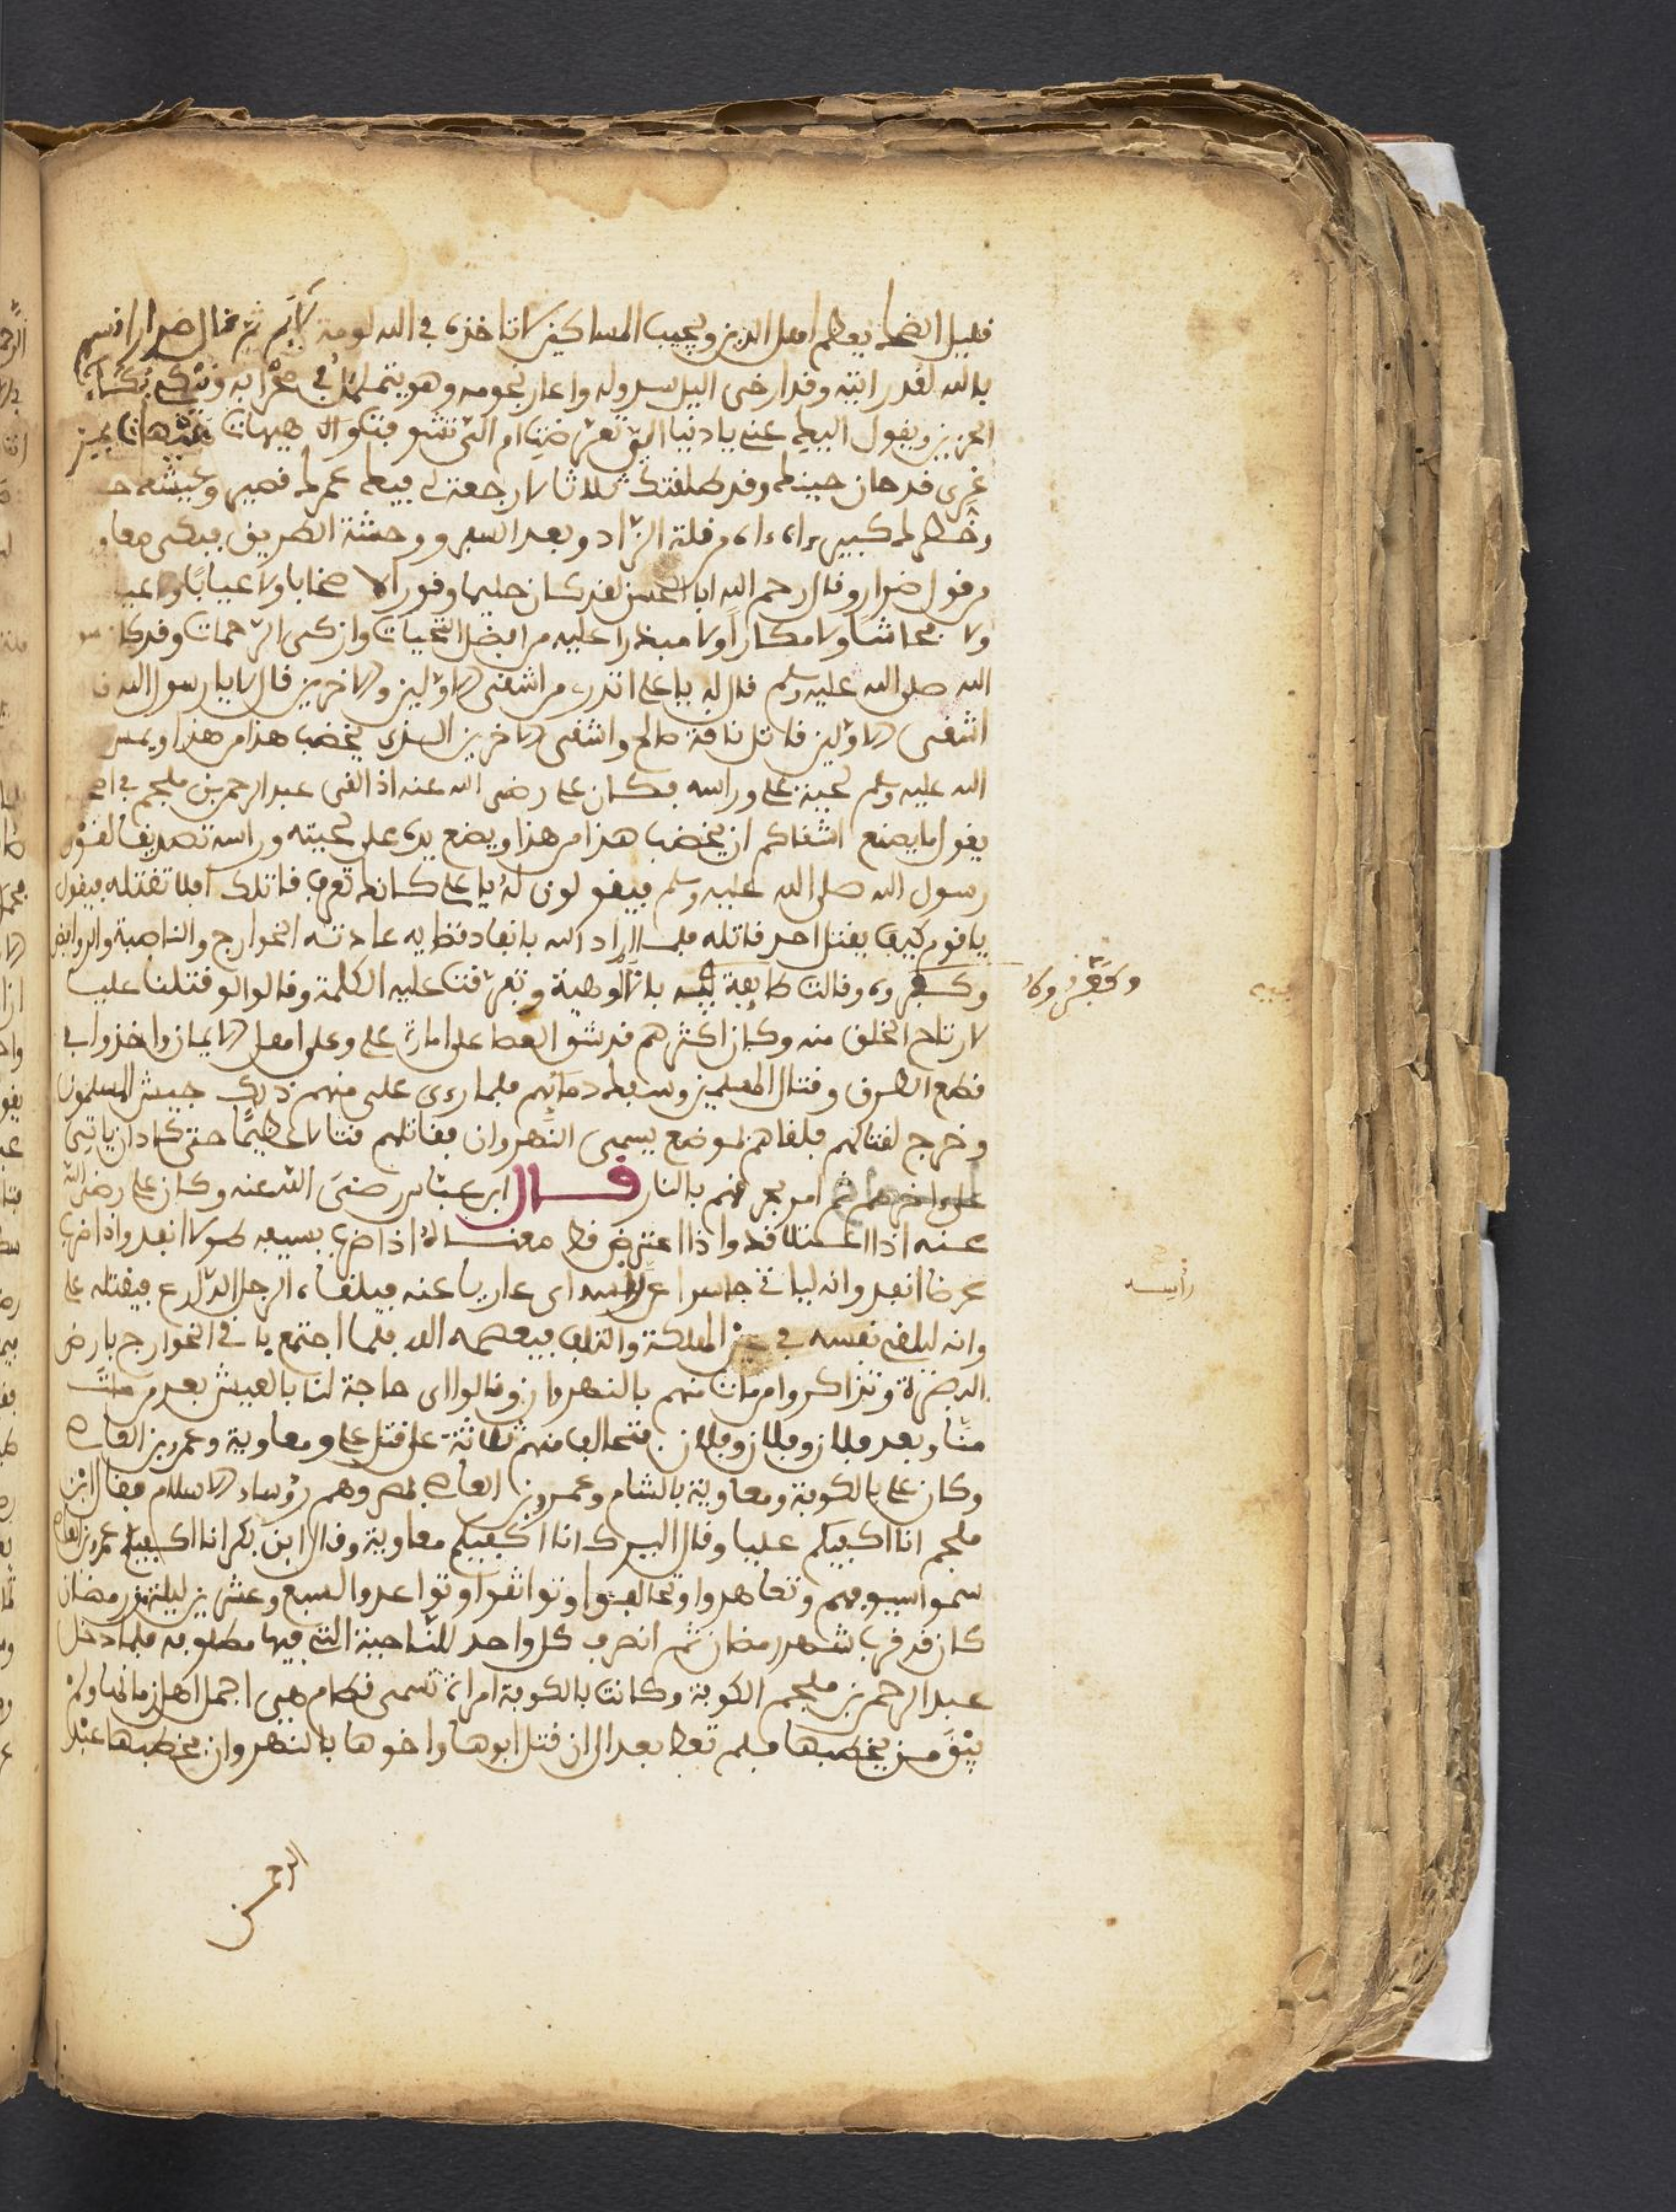 قليل الضحك يعظم اهل الدين ويحب المساكين لا تاخذه في الله لومة لايم ثم قال ضرار اقسم
بالله لقد رايته وقد ارخى اليل سدوله واغار نجومه وهو يتململ في محرابه ويبكي بكاء
الحزين ويقول اليك عني يا دنيا الي تعرضت ام الي تشوفت هيهات هيهات
غري قد حان حينك وقد طلقتك ثلاثا لا رجعة لي فيك عمرك قصير وعيشك
وخطرك كبير اه اه من قلة الزاد وبعد السفر ووحشة الطريق فبكى معاو
من قول ضرار وقال رحم الله ابا الحسن لقد كان حليما وقورا لا صخابا ولا عيابا ولا
ولا فحاشا ولا مكارا ولا مبذرا عليه من افضل التحيات وازكى الرحمات وقد كان
الله صلى الله عليه وسلم قال له يا علي اتدري من اشقى الاولين والاخرين قال لا يا رسول الله
اشقى الاولين قاتل ناقة صالح واشقى الاخرين الذي يخضب هذا من هذا
الله عليه وسلم لحية علي وراسه فكان علي رضي الله عنه اذا لقي عبد الرحمن بن ملجم في
يقول ما يصنع اشقاكم ان يخضب هذا من هذا ويضع يده على لحيته وراسه تصديقا لقول
رسول الله صلى الله عليه وسلم فيقولون له يا علي كانك تعرف قاتلك افلا تقتله فيقول
يا قوم كيف يقتل احد قاتله فلما اراد الله بانفاد قضايه عادته الخوارج والناصبة والروافض
وكفروه وقالت طايفة فيه بالالوهية وتفرقت عليه الكلمة وقالوا لو قتلنا عليا
لارتاح الخلق منه وكان اكثرهم قد شق العصا على امارة علي وعلى اهل الايمان واخذوا في
قطع الطرق وقتال المسلمين وسفك دمايهم فلما رءى علي منهم ذلك جيش المسلمون
وخرج لقتالهم فلقاهم بموضع يسمى النهروان فقاتلهم قتالا عظيما حتى كاد ان ياتي
على اخرهم ثم امر بحرقهم بالنار قال ابن عباس رضي الله عنه وكان علي رضي الله
عنه اذا اعتلا قد واذا اعترض قط معناه اذا ضرب بسيفه طولا انفد واذا ضرب
عرضا انفد وانه لياتي حاسرا عن راسه اى عاريا عنه فيلقاه الرجل الدارع فيقتله علي
وانه ليلقي نفسه في الهلكة والتلف فيعصمه الله فلما اجتمع باقي الخوارج بارض
البصرة وتذاكروا من مات منهم بالنهروان وقالوا اى حاجة لنا بالعيش بعد من مات
منا وبعد فلان وفلان وفلان فتحالف منهم ثلاثة على قتل علي ومعاوية وعمرو بن العاص
وكان علي بالكوفة ومعاوية بالشام وعمرو بن العاص بمصر وهم رؤساء الاسلام فقال ابن
ملجم انا اكفيكم عليا وقال البرك انا اكفيكم معاوية وقال ابن بكر انا اكفيكم عمرو بن العاص
سموا سيوفهم وتعاهدوا وتحالفوا وتواثقوا وتواعدوا لسبع وعشرين ليلة من رمضان
كان قد قرب شهر رمضان ثم انصرف كل واحد للناحية التي فيها مطلوبه فلما دخل
عبد الرحمن بن ملجم الكوفة وكانت بالكوفة امراة تسمى قطام هي اجمل اهل زمانها ولم
يبق من يخطبها فلم تعط بعد ان قتل ابوها واخوها بالنهروان فخطبها عبد
الرحمن
راسه